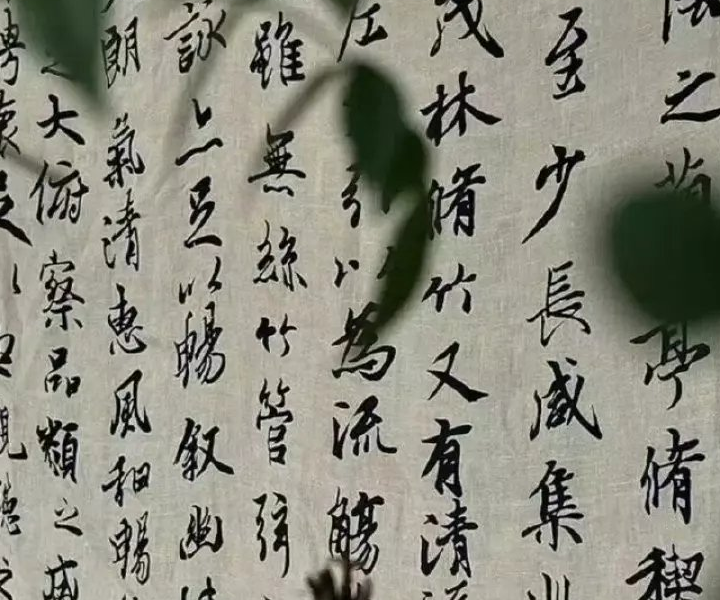 之蘭亭脩禊
至少長咸集此
茂林脩竹又有清流
左引以為流觴
雖無絲竹管弦
詠亦足以暢叙幽情
朗氣清惠風和暢
之大俯察品類之盛
騁懷足以極視聽之